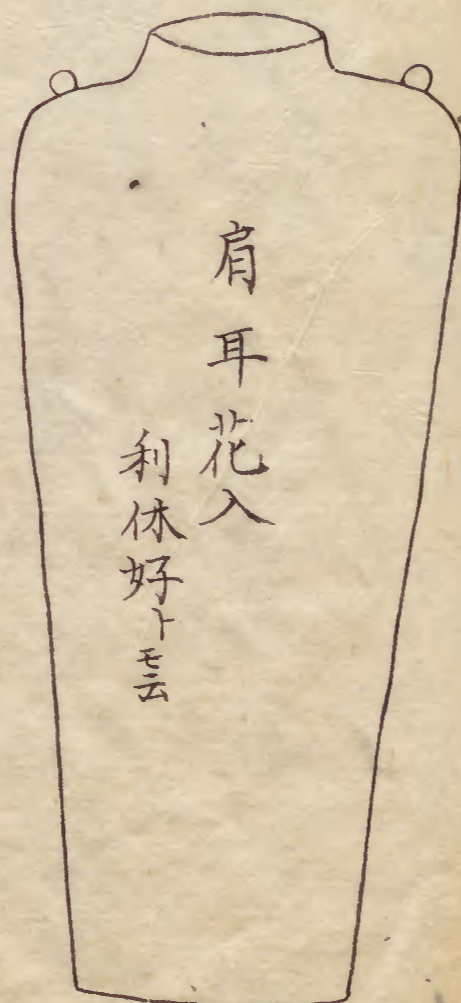 肩耳花入
利休好トモ云